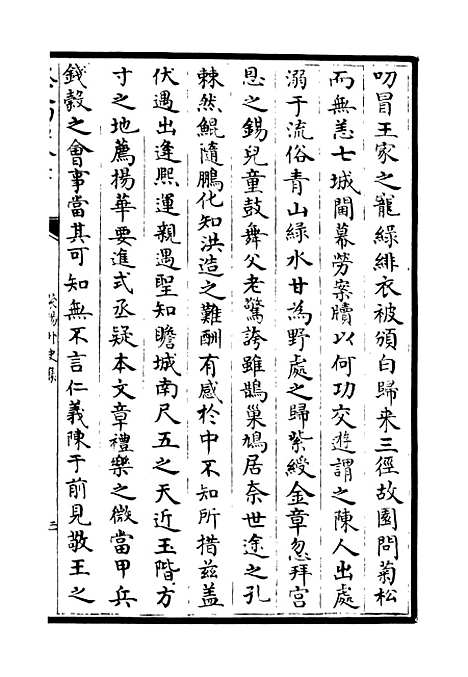 叨冒王家之寵綠緋衣被頒白歸来三徑故園問菊松
而無恙七城閫幕勞案牘以何功交遊謂之陳人出處
溺于流俗青山綠水甘為野處之歸紫綬金章忽拜宫
恩之錫兒童鼓舞父老驚誇雖鵲巢鳩居奈世途之孔
棘然鯤隨鵬化知洪造之難酬有感於中不知所措兹盖
伏遇出逢熙運親遇聖知瞻城南尺五之天近玉階方
寸之地薦揚華要進式丞疑本文章禮樂之微當甲兵
錢穀之會事當其可知無不言仁義陳于前見敬王之
滎陽外史集
三